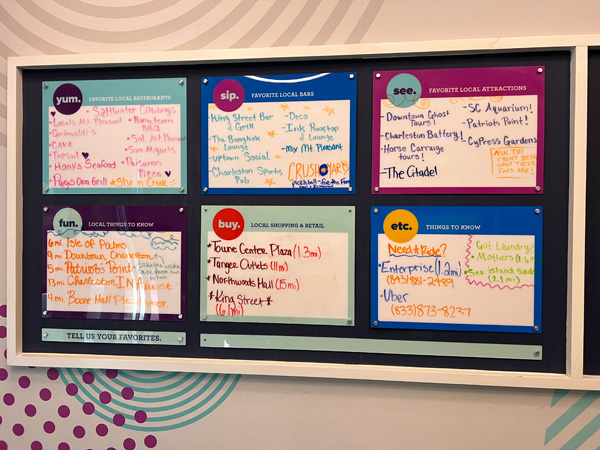 yum.
FAVORITE LOCAL RESTAURANTS
Saltwater Cowboys
Locals Mt. Pleasant
Grimaldi's
CAVA
Topsail
Hanks Seafood
Page's Okra Grill
Home team
BBQ
Sol Mt. Pleasant
San Miguels
Parsons
Pizza
sip.
FAVORITE LOCAL BARS
•King Street Bar
& Grill
•The Bangkok
Lounge
•uptown Social
•Charleston Sports
Pub
-Deco
-Ink Rooftop
& Lounge
-Mix Mt Pleasant
CRUSH YARD
see.
FAVORITE LOCAL ATTRACTIONS
Downtown Ghost
Tours!
Charleston Battery!
Horse Carraige
tours!
-The Citadel
-SC Aquarium!
-Patriots Point!
-Cypress Gardens
ASK THE
FRONT DESK
WHAT THEIR
FAVS ARE!
fun.
LOCAL THINGS TO KNOW
6 mi. Isle of Palms
9 mi. Downtown Charleston
5 mi. Patriots Point
13 mi. Charleston INT Airport
4 mi. Boone Hall
buy.
LOCAL SHOPPING & RETAIL
*Towne Center Plaza (1.3mi)
*Tanger Outlets (11mi)
*Northwoods Mall (15mi)
*King Street*
(6.1mi)
etc.
THINGS TO KNOW
Need a Ride?
*Enterprise (1.2mi)
(843)881-2489
*Uber
(833)873-8237
Got Laundry?
•Mothers
•Sea Island Suds
(2.1mi)
TELL US YOUR FAVORITES.